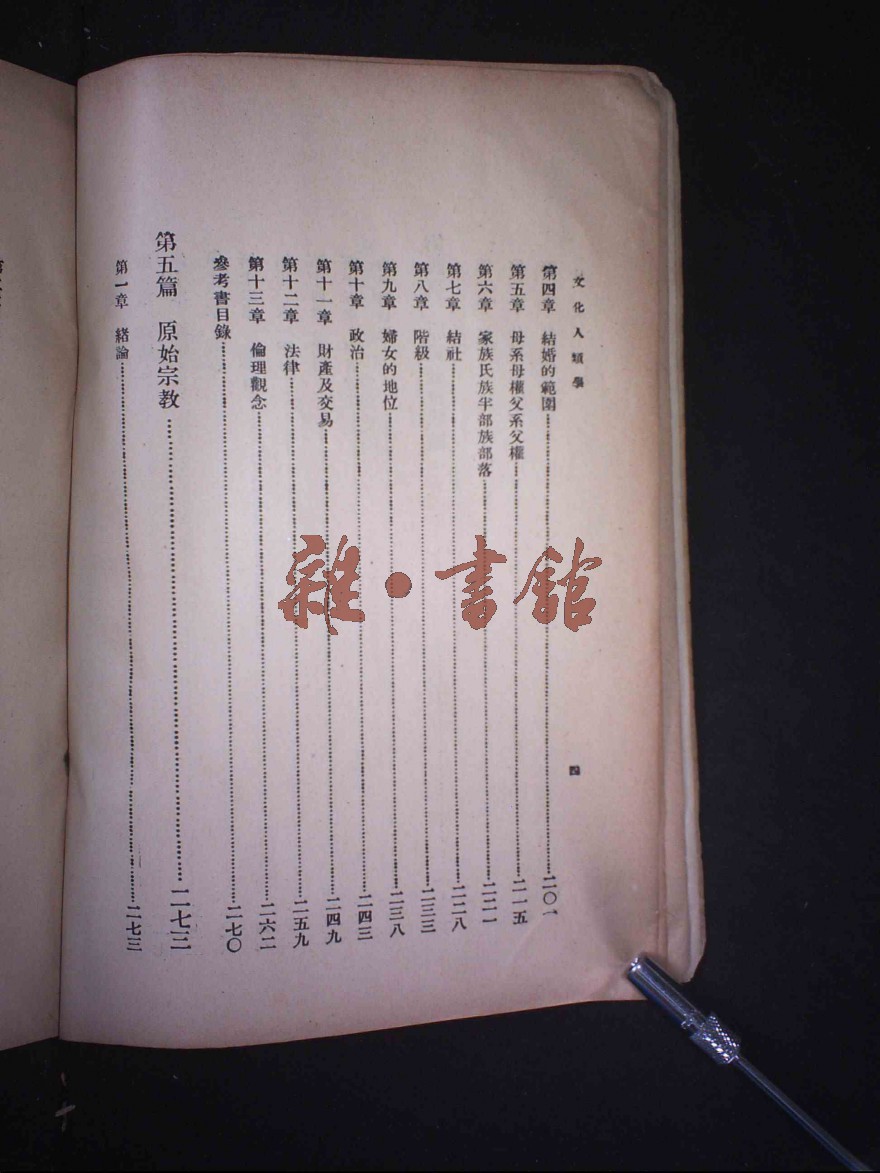 文化人類學
四
第四章 結婚的範圍……二〇一
第五章 母系母權父系父權……二一五
第六章 家族氏族半部族部落……二二一
第七章 結社……二二八
第八章 階級……二三三
第九章 婦女的地位……二三八
第十章 政治……二四三
第十一章 財產及交易……二四九
第十二章 法律……二五九
第十三章 倫理觀念……二六二
參考書目錄……二七〇
第五篇 原始宗教……二七三
第一章 緒論……二七三
雜·書館